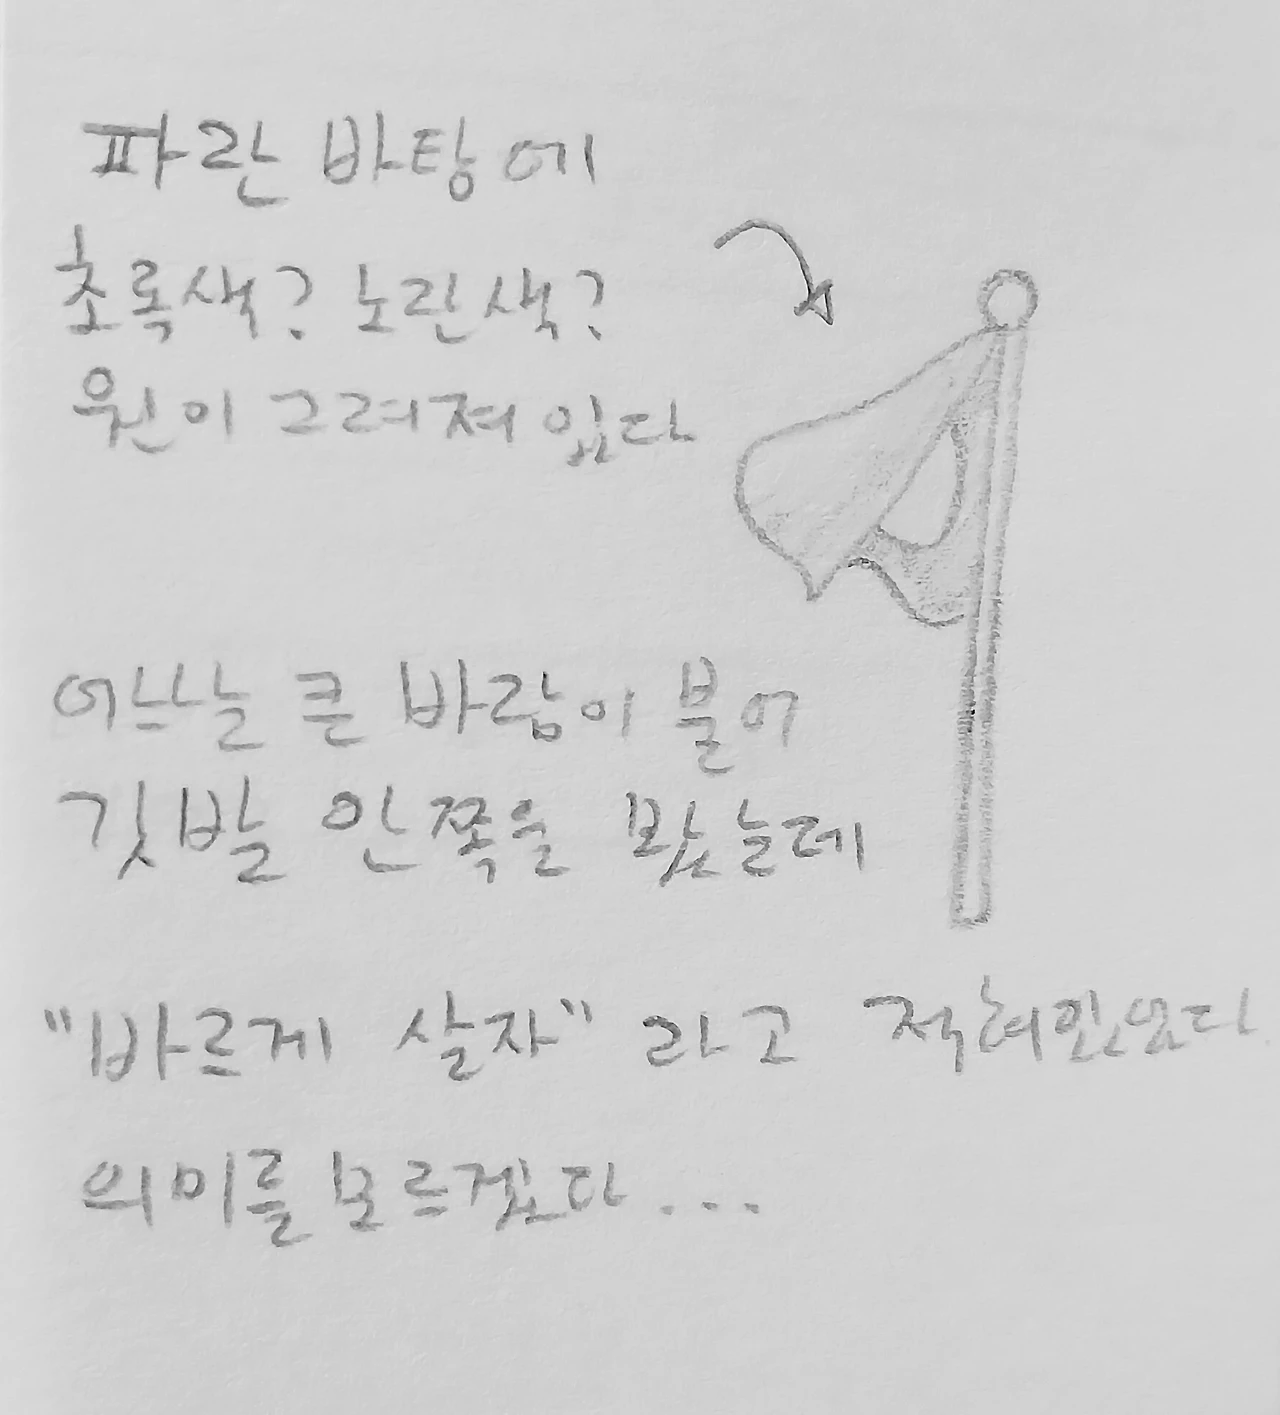 파란 바탕에
초록색? 노란색?
원이 그려져 있다
어느날 큰 바람이 불어
깃발 안쪽을 봤는데
"바르게 살자" 라고 적혀있었다
의미를 모르겠다...